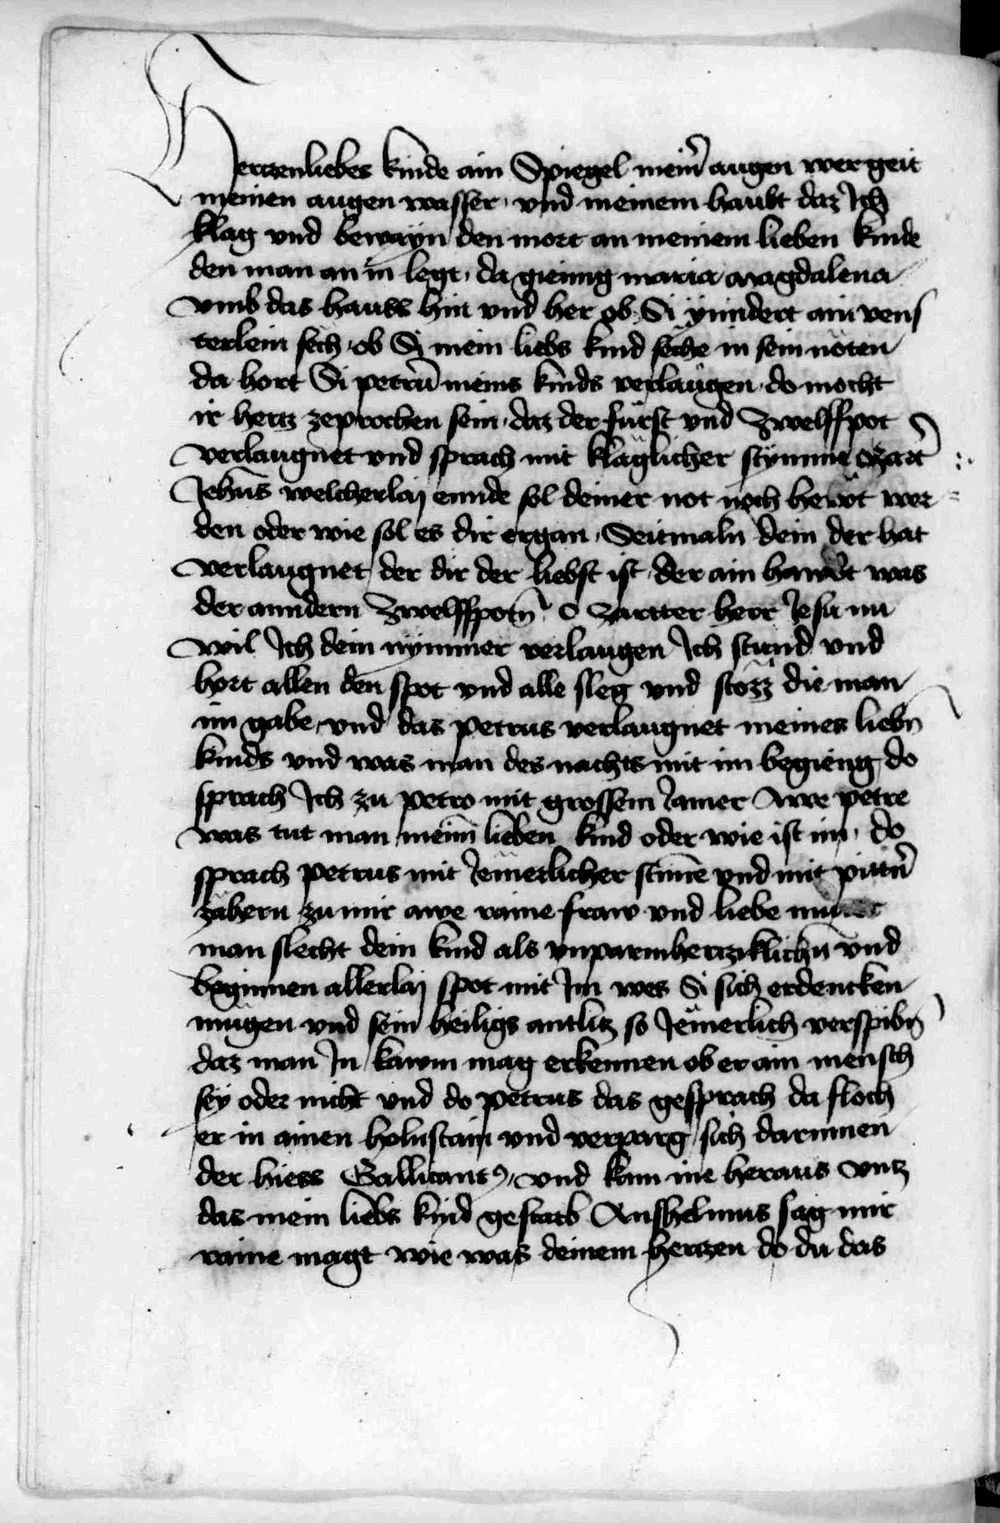 Herczenliebes kinde ain Spiegel mein̄ augen wer geit
meinen augen wasser · vnd meinem haubt daz Jch
klag vnd bewayn den mort an meinem lieben kinde
den man an in legt · da gieing maria magdalena
vmb das hauss hin vnd her ob Si ÿnndert ain vens
terlein sech · ob Si mein liebs kind seche in sein nöten
da hort Si petrū meins kinds verlaugen · do mocht
ir hertz zeprochen sein · daz der fürst vnd Zwelffpot
verlaugnet vnd sprach mit kläglicher stÿmme Zart̄
Jehūs welcherlaÿ ennde sol deiner not noch hewt wer
den oder wie sol es dir ergan · Seitmaln dein der hat
verlaugnet der dir der liebst ist · der ain hawbt was
der anndern Zwelffpotn̄ · O zartter herr Jesu nu
wil Jch dein nÿmmer verlaugen Jch stund vnd
hort allen den spot vnd alle sleg vnd stözz die man
im gabe · vnd das petrus verlaugnet meines liebn̄
kinds vnd was man des nachts mit im begieng do
sprach Jch zu petro mit grossem Jamer Awe petre
was tut man meinē lieben kind oder wie ist im · do
sprach petrus mit Jemerlicher stimē vnd mit pittn̄
zähern zu mir awe raine fraw vnd liebe
man slecht dein kind als vnparmhercziklichn̄ vnd
beginnen allerlaÿ spot mit Jm wes Si sich erdencken
mügen vnd sein heiligs antlitz so Jemerlich verspibn̄
daz man Jn kawm mag erkennen ob er ain mensch
seÿ oder nicht vnd do petrus das gesprach da floch
er in ainen holnstain vnd verparg sich darinnen
der hiess Gallicantꝰ · vnd kam nie heraus vntz
das mein liebs kind gestarb Anshelmus sag mir
raine magt wie was deinem herczen do du das